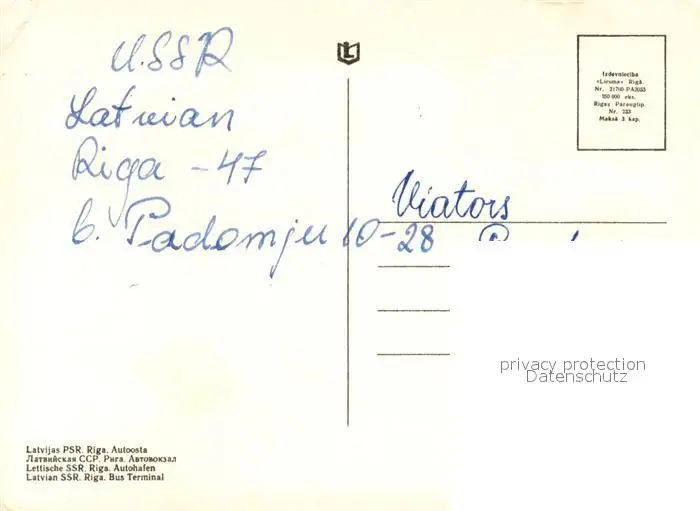 U.SSR
Latvian
Riga - 47
b. Padomju 10-28
Viators
Izdevniecība
«Liesma» Rīgā.
Nr. 21700-PA2033
150 000 eks.
Rīgas Paraugtip.
Nr. 233
Maksā 3 kap.
privacy protection
Datenschutz
Latvijas PSR. Rīga. Autoosta
Латвийская ССР. Рига. Автовокзал
Lettische SSR. Riga. Autohafen
Latvian SSR. Riga. Bus Terminal